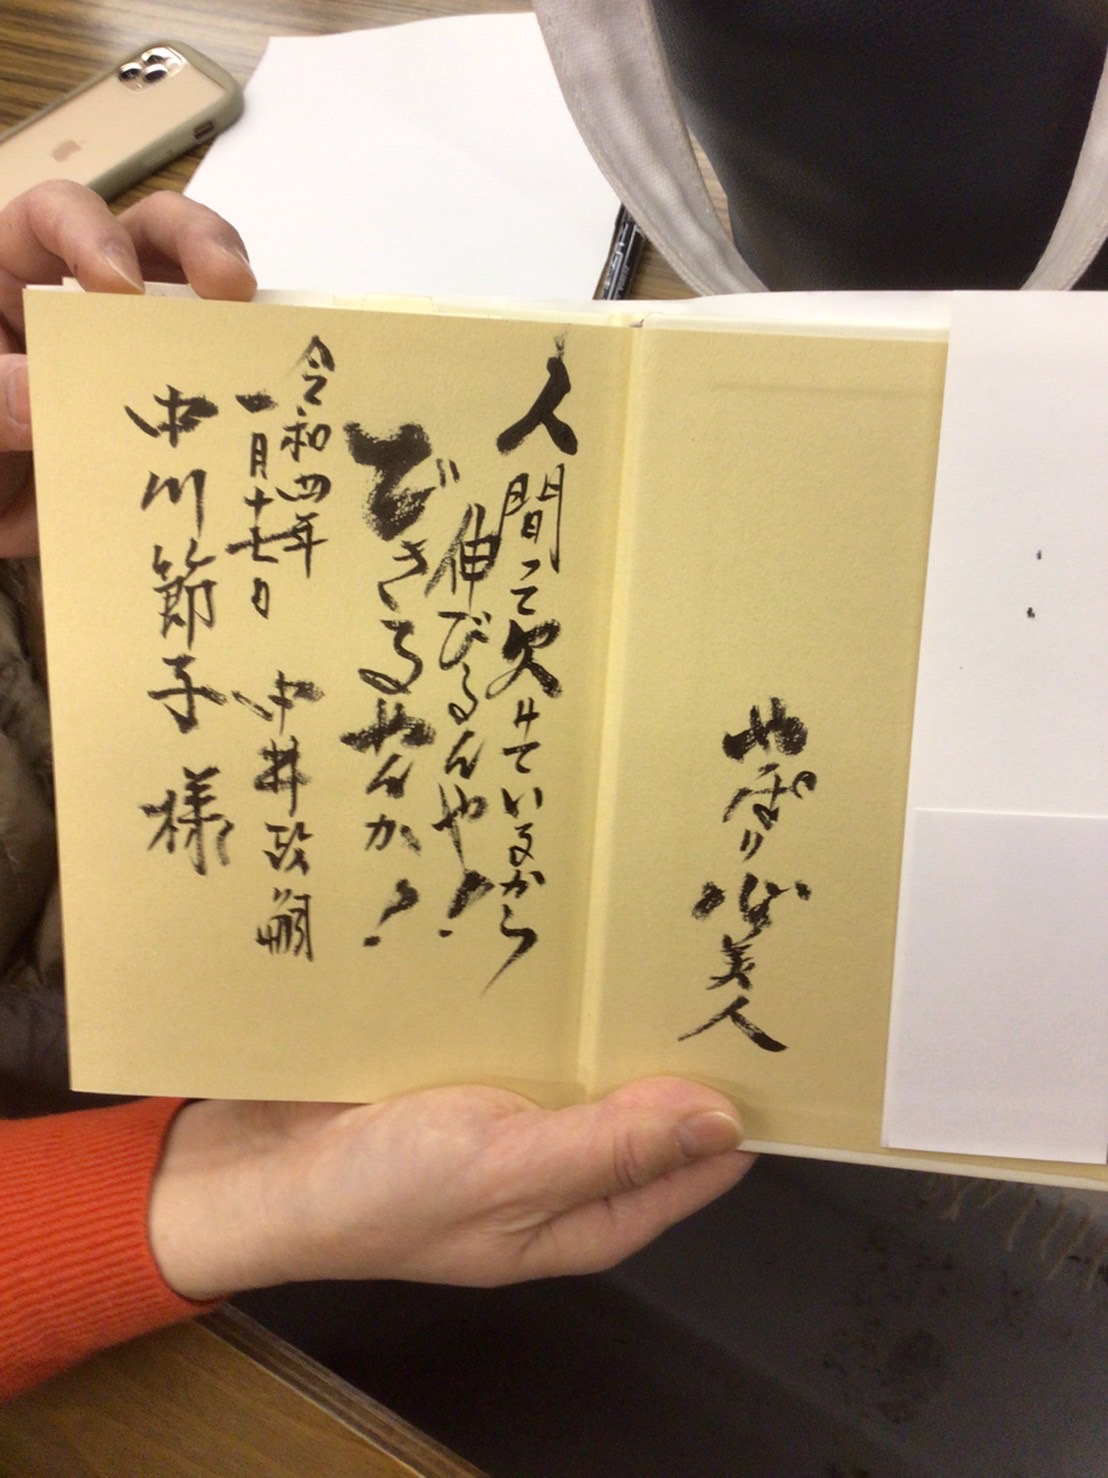 心美人
人間って欠けているから
伸びるんや!
できるやんか!
令和四年
一月十七日 中井政嗣
中川節子様